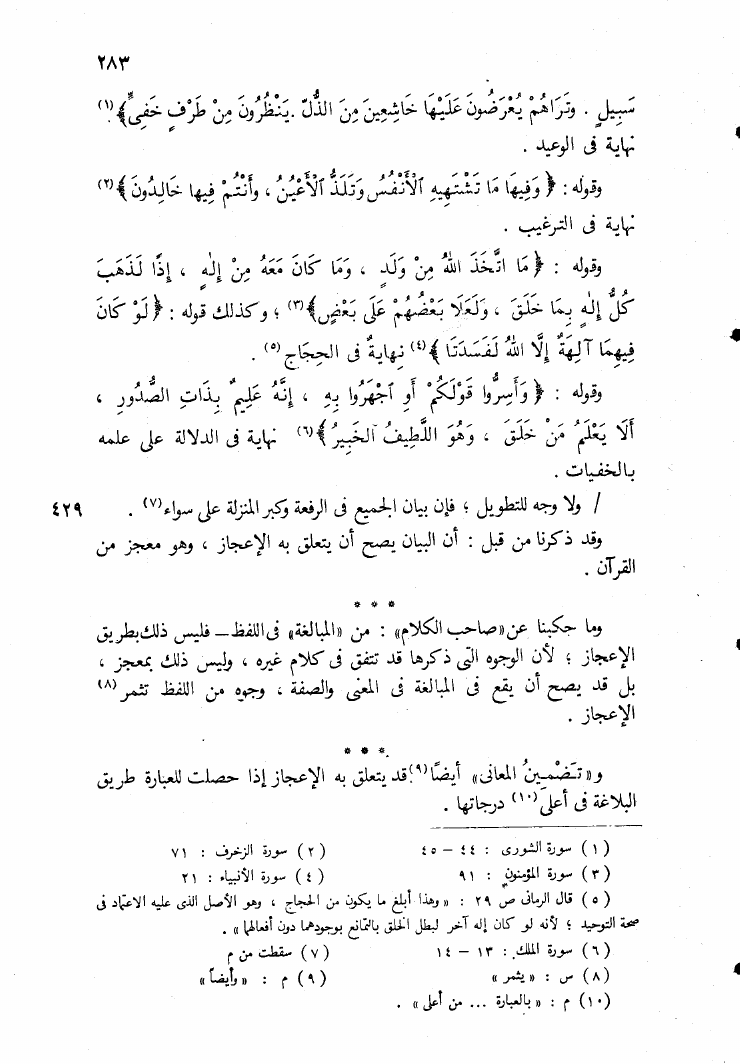 ٢٨٣
سَبِيلٍ . وتَرَاهُمْ يُعْرَضُونَ عَلَيْهَا خَاشِعِينَ مِنَ الذُّلّ .يَنْظُرُونَ مِنْ طَرْفٍ خَفِيٍّ﴾(١)
نهاية فى الوعيد .
وقوله : ﴿ وَفِيهَا مَا تَشْتَهِيهِ الْأَنْفُسُ وَتَلَذُّ الْأَعْيُنُ ، وأَنْتُمْ فِيها خَالِدُونَ ﴾(٢)
نهاية فى الترغيب .
وقوله : ﴿ مَا اتَّخَذَ اللهُ مِنْ وَلَدٍ ، وَمَا كَانَ مَعَهُ مِنْ إِلٰهٍ ، إِذًا لَذَهَبَ
كُلُّ إِلٰهٍ بِمَا خَلَقَ ، وَلَعَلَا بَعْضُهُمْ عَلَى بَعْضٍ﴾(٣) ؛ وكذلك قوله : ﴿ لَوْ كَانَ
فِيهِمَا آلِهَةٌ إِلَّا اللهُ لَفَسَدَتَا ﴾(٤) نِهايةٌ فى الحِجَاج(٥) .
وقوله : ﴿ وَأَسِرُّوا قَوْلَكُمْ أَوِ اجْهَرُوا بِهِ ، إِنَّهُ عَلِيمٌ بِذَاتِ الصُّدُورِ ،
أَلَا يَعْلَمُ مَنْ خَلَقَ ، وَهُوَ اللَّطِيفُ الخَبِيرُ ﴾(٦) نهاية فى الدلالة على علمه
بالخفيات .
/ ولا وجه للتطويل ؛ فإن بيان الجميع فى الرفعة وكبر المنزلة على سواء(٧) . ٤٢٩
وقد ذكرنا من قبل : أن البيان يصح أن يتعلق به الإعجاز ، وهو معجز من
القرآن .
* * *
وما حكينا عن «صاحب الكلام» : من «المبالغة» فى اللفظ – فليس ذلك بطريق
الإعجاز ؛ لأن الوجوه التى ذكرها قد تتفق فى كلام غيره ، وليس ذلك بمعجز ،
بل قد يصح أن يقع فى المبالغة فى المعنى والصفة ، وجوه من اللفظ تثمر(٨)
الإعجاز .
* * *
و«تَضْمِينُ المعانى» أيضًا(٩) قد يتعلق به الإعجاز إذا حصلت للعبارة طريق
البلاغة فى أعلَى(١٠) درجاتها .
(١) سورة الشورى : ٤٤ – ٤٥ (٢) سورة الزخرف : ٧١
(٣) سورة المؤمنون : ٩١ (٤) سورة الأنبياء : ٢١
(٥) قال الرمانى ص ٢٩ : « وهذا أبلغ ما يكون من الحجاج ، وهو الأصل الذى عليه الاعتماد فى
صحة التوحيد ؛ لأنه لو كان إله آخر لبطل الخلق بالتمانع بوجودهما دون أفعالهما » .
(٦) سورة الملك : ١٣ – ١٤ (٧) سقطت من م
(٨) س : « يثمر » (٩) م : « وأيضاً »
(١٠) م : « بالعبارة ... من أعلى » .